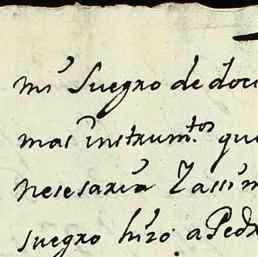 mi suegro de doc
mas instrum.tos que
nesesaria Y assim
suegro hizo a Pedr